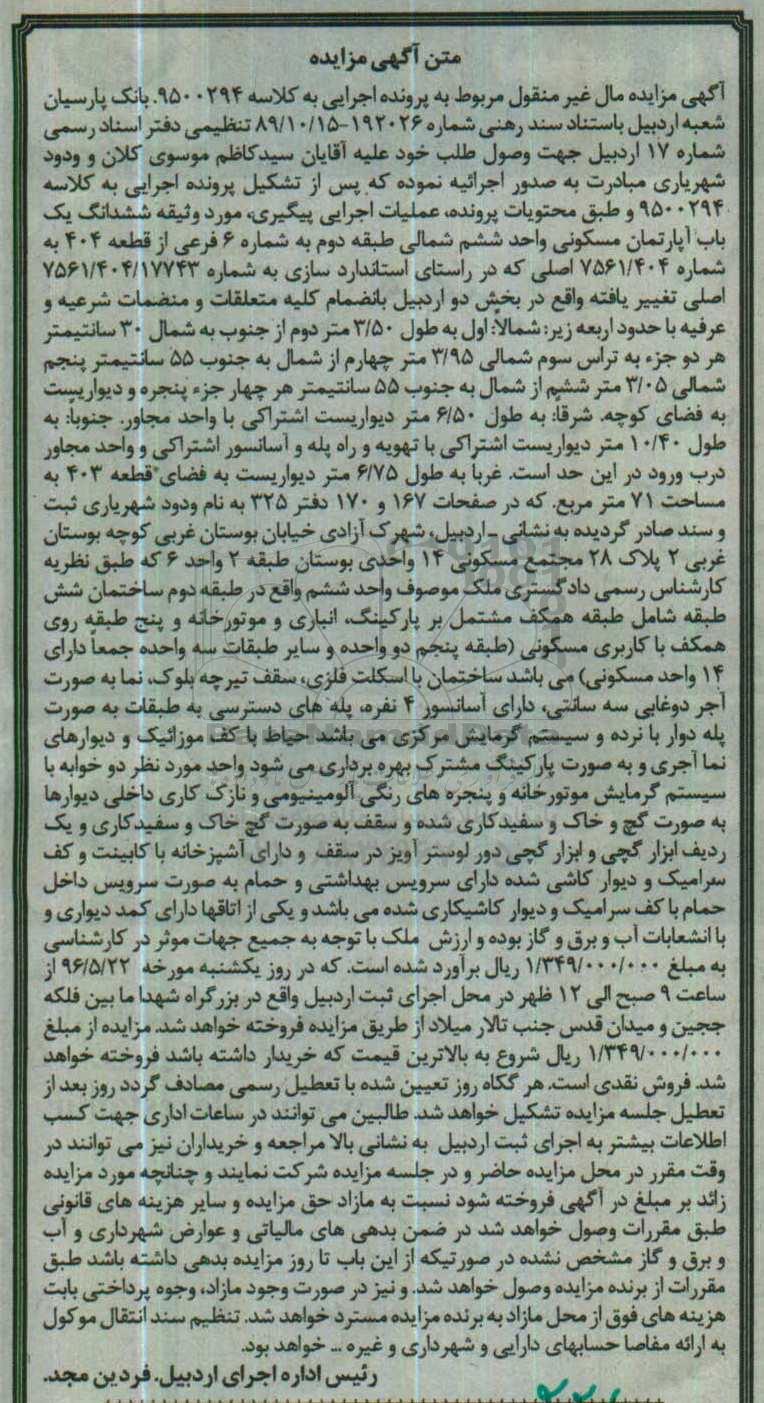 متن آگهی مزایده
آگهی مزایده مال غیر منقول مربوط به پرونده اجرایی به کلاسه ۹۵۰۰۲۹۴. بانک پارسیان
شعبه اردبیل باستناد سند رهنی شماره ۱۹۲۰۲۶-۸۹/۱۰/۱۵ تنظیمی دفتر اسناد رسمی
شماره ۱۷ اردبیل جهت وصول طلب خود علیه آقایان سیدکاظم موسوی کلان و ودود
شهریاری مبادرت به صدور اجرائیه نموده که پس از تشکیل پرونده اجرایی به کلاسه
۹۵۰۰۲۹۴ و طبق محتویات پرونده، عملیات اجرایی پیگیری، مورد وثیقه ششدانگ یک
باب آپارتمان مسکونی واحد ششم شمالی طبقه دوم به شماره ۶ فرعی از قطعه ۴۰۴ به
شماره ۷۵۶۱/۴۰۴ اصلی که در راستای استاندارد سازی به شماره ۷۵۶۱/۴۰۴/۱۷۷۴۳
اصلی تغییر یافته واقع در بخش دو اردبیل بانضمام کلیه متعلقات و منضمات شرعیه و
عرفیه با حدود اربعه زیر: شمالاً: اول به طول ۳/۵۰ متر دوم از جنوب به شمال ۳۰ سانتیمتر
هر دو جزء به تراس سوم شمالی ۳/۹۵ متر چهارم از شمال به جنوب ۵۵ سانتیمتر پنجم
شمالی ۳/۰۵ متر ششم از شمال به جنوب ۵۵ سانتیمتر هر چهار جزء پنجره و دیواریست
به فضای کوچه. شرقا: به طول ۶/۵۰ متر دیواریست اشتراکی با واحد مجاور. جنوبا: به
طول ۱۰/۴۰ متر دیواریست اشتراکی با تهویه و راه پله و آسانسور اشتراکی و واحد مجاور
درب ورود در این حد است. غرباً به طول ۶/۷۵ متر دیواریست به فضای قطعه ۴۰۳ به
مساحت ۷۱ متر مربع. که در صفحات ۱۶۷ و ۱۷۰ دفتر ۳۲۵ به نام ودود شهریاری ثبت
و سند صادر گردیده به نشانی -اردبیل، شهرک آزادی خیابان بوستان غربی کوچه بوستان
غربی ۲ پلاک ۲۸ مجتمع مسکونی ۱۴ واحدی بوستان طبقه ۲ واحد ۶ که طبق نظریه
کارشناس رسمی دادگستری ملک موصوف واحد ششم واقع در طبقه دوم ساختمان شش
طبقه شامل طبقه همکف مشتمل بر پارکینگ، انباری و موتورخانه و پنج طبقه روی
همکف با کاربری مسکونی (طبقه پنجم دو واحده و سایر طبقات سه واحده جمعاً دارای
۱۴ واحد مسکونی) می باشد ساختمان با اسکلت فلزی، سقف تیرچه بلوک، نما به صورت
آجر دوغابی سه سانتی، دارای آسانسور ۴ نفره، پله های دسترسی به طبقات به صورت
پله دوار با نرده و سیستم گرمایش مرکزی می باشد حیاط با کف موزائیک و دیوارهای
نما آجری و به صورت پارکینگ مشترک بهره برداری می شود واحد مورد نظر دو خوابه با
سیستم گرمایش موتورخانه و پنجره های رنگی آلومینیومی و نازک کاری داخلی دیوارها
به صورت گچ و خاک و سفیدکاری شده و سقف به صورت گچ خاک و سفیدکاری و یک
ردیف ابزار گچی و ابزار گچی دور لوستر آویز در سقف و دارای آشپزخانه با کابینت و کف
سرامیک و دیوار کاشی شده دارای سرویس بهداشتی و حمام به صورت سرویس داخل
حمام با کف سرامیک و دیوار کاشیکاری شده می باشد و یکی از اتاقها دارای کمد دیواری و
با انشعابات آب و برق و گاز بوده و ارزش ملک با توجه به جمیع جهات موثر در کارشناسی
به مبلغ ۱/۳۴۹/۰۰۰/۰۰۰ ریال برآورد شده است. که در روز یکشنبه مورخه ۹۶/۵/۲۲ از
ساعت ۹ صبح الی ۱۲ ظهر در محل اجرای ثبت اردبیل واقع در بزرگراه شهدا ما بین فلکه
ججین و میدان قدس جنب تالار میلاد از طریق مزایده فروخته خواهد شد. مزایده از مبلغ
۱/۳۴۹/۰۰۰/۰۰۰ ریال شروع به بالاترین قیمت که خریدار داشته باشد فروخته خواهد
شد. فروش نقدی است. هر گاه روز تعیین شده با تعطیل رسمی مصادف گردد روز بعد از
تعطیل جلسه مزایده تشکیل خواهد شد. طالبین می توانند در ساعات اداری جهت کسب
اطلاعات بیشتر به اجرای ثبت اردبیل به نشانی بالا مراجعه و خریداران نیز می توانند در
وقت مقرر در محل مزایده حاضر و در جلسه مزایده شرکت نمایند و چنانچه مورد مزایده
زائد بر مبلغ در آگهی فروخته شود نسبت به مازاد حق مزایده و سایر هزینه های قانونی
طبق مقررات وصول خواهد شد در ضمن بدهی های مالیاتی و عوارض شهرداری و آب
و برق و گاز مشخص نشده در صورتیکه از این باب تا روز مزایده بدهی داشته باشد طبق
مقررات از برنده مزایده وصول خواهد شد. و نیز در صورت وجود مازاد، وجوه پرداختی بابت
هزینه های فوق از محل مازاد به برنده مزایده مسترد خواهد شد. تنظیم سند انتقال موکول
به ارائه مفاصا حسابهای دارایی و شهرداری و غیره ... خواهد بود.
رئیس اداره اجرای اردبیل. فردین مجد.